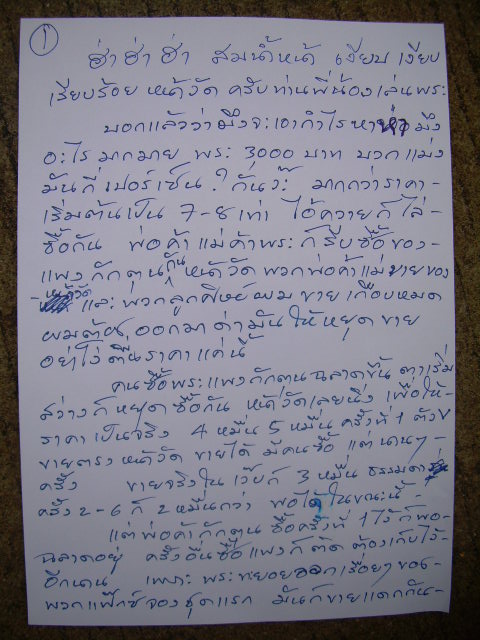 ①
ฮ่าฮ่าฮ่า สมน้ำหน้า เงียบ เงียบ
เรียบร้อย หน้าวัด ครับท่านพี่น้องเล่นพระ
บอกแล้วว่ามึงจะเอากำไรหาห่ามึง
อะไร มากมาย พระ 3000 บาท บวกแม่ง
มันกี่เปอร์เซ็น ? กันวะ มากกว่าราคา-
เริ่มต้นเป็น 7-8 เท่า ไอ้ควายก็ไล่-
ซื้อกัน พ่อค้าแม่ค้าพระก็รีบซื้อของ-
แพงกักตุนกัน หน้าวัด พวกพ่อค้าแม่ขายของ
-หน้าวัด และพวกลูกศิษย์ผมขายเกือบหมด
ผมต้อง ออกมาด่ามันให้หยุดขาย
อย่าโง่ ตื่นราคาแค่นี้
คนซื้อพระแพงกักตุนฉลาดขึ้น ตาเริ่ม
สว่างก็หยุดซื้อกัน หน้าวัดเลยนิ่ง เพื่อให้-
ราคาเป็นจริง 4 หมื่น 5 หมื่น ครั้งที่ 1 ตัง
ขายตรงหน้าวัด ขายได้ มีคนซื้อ แต่นานๆ-
ครั้ง ขายจริงในเว็บก็ 3 หมื่น ธรรมดา
ครั้ง 2-6 ก็ 2 หมื่นกว่า พอได้ในขณะนี้-
แต่พ่อค้ากักตุน ซื้อครั้งที่ 1 ไว้ก็พอ-
ฉลาดอยู่ ครั้งอื่นซื้อแพงก็ติด ต้องเก็บไว้-
อีกนาน เพราะ พระทยอยออกเรื่อยๆ ของ-
พวกแฟ็กซ์จองชุดแรก มันก็ขายแดกกัน-